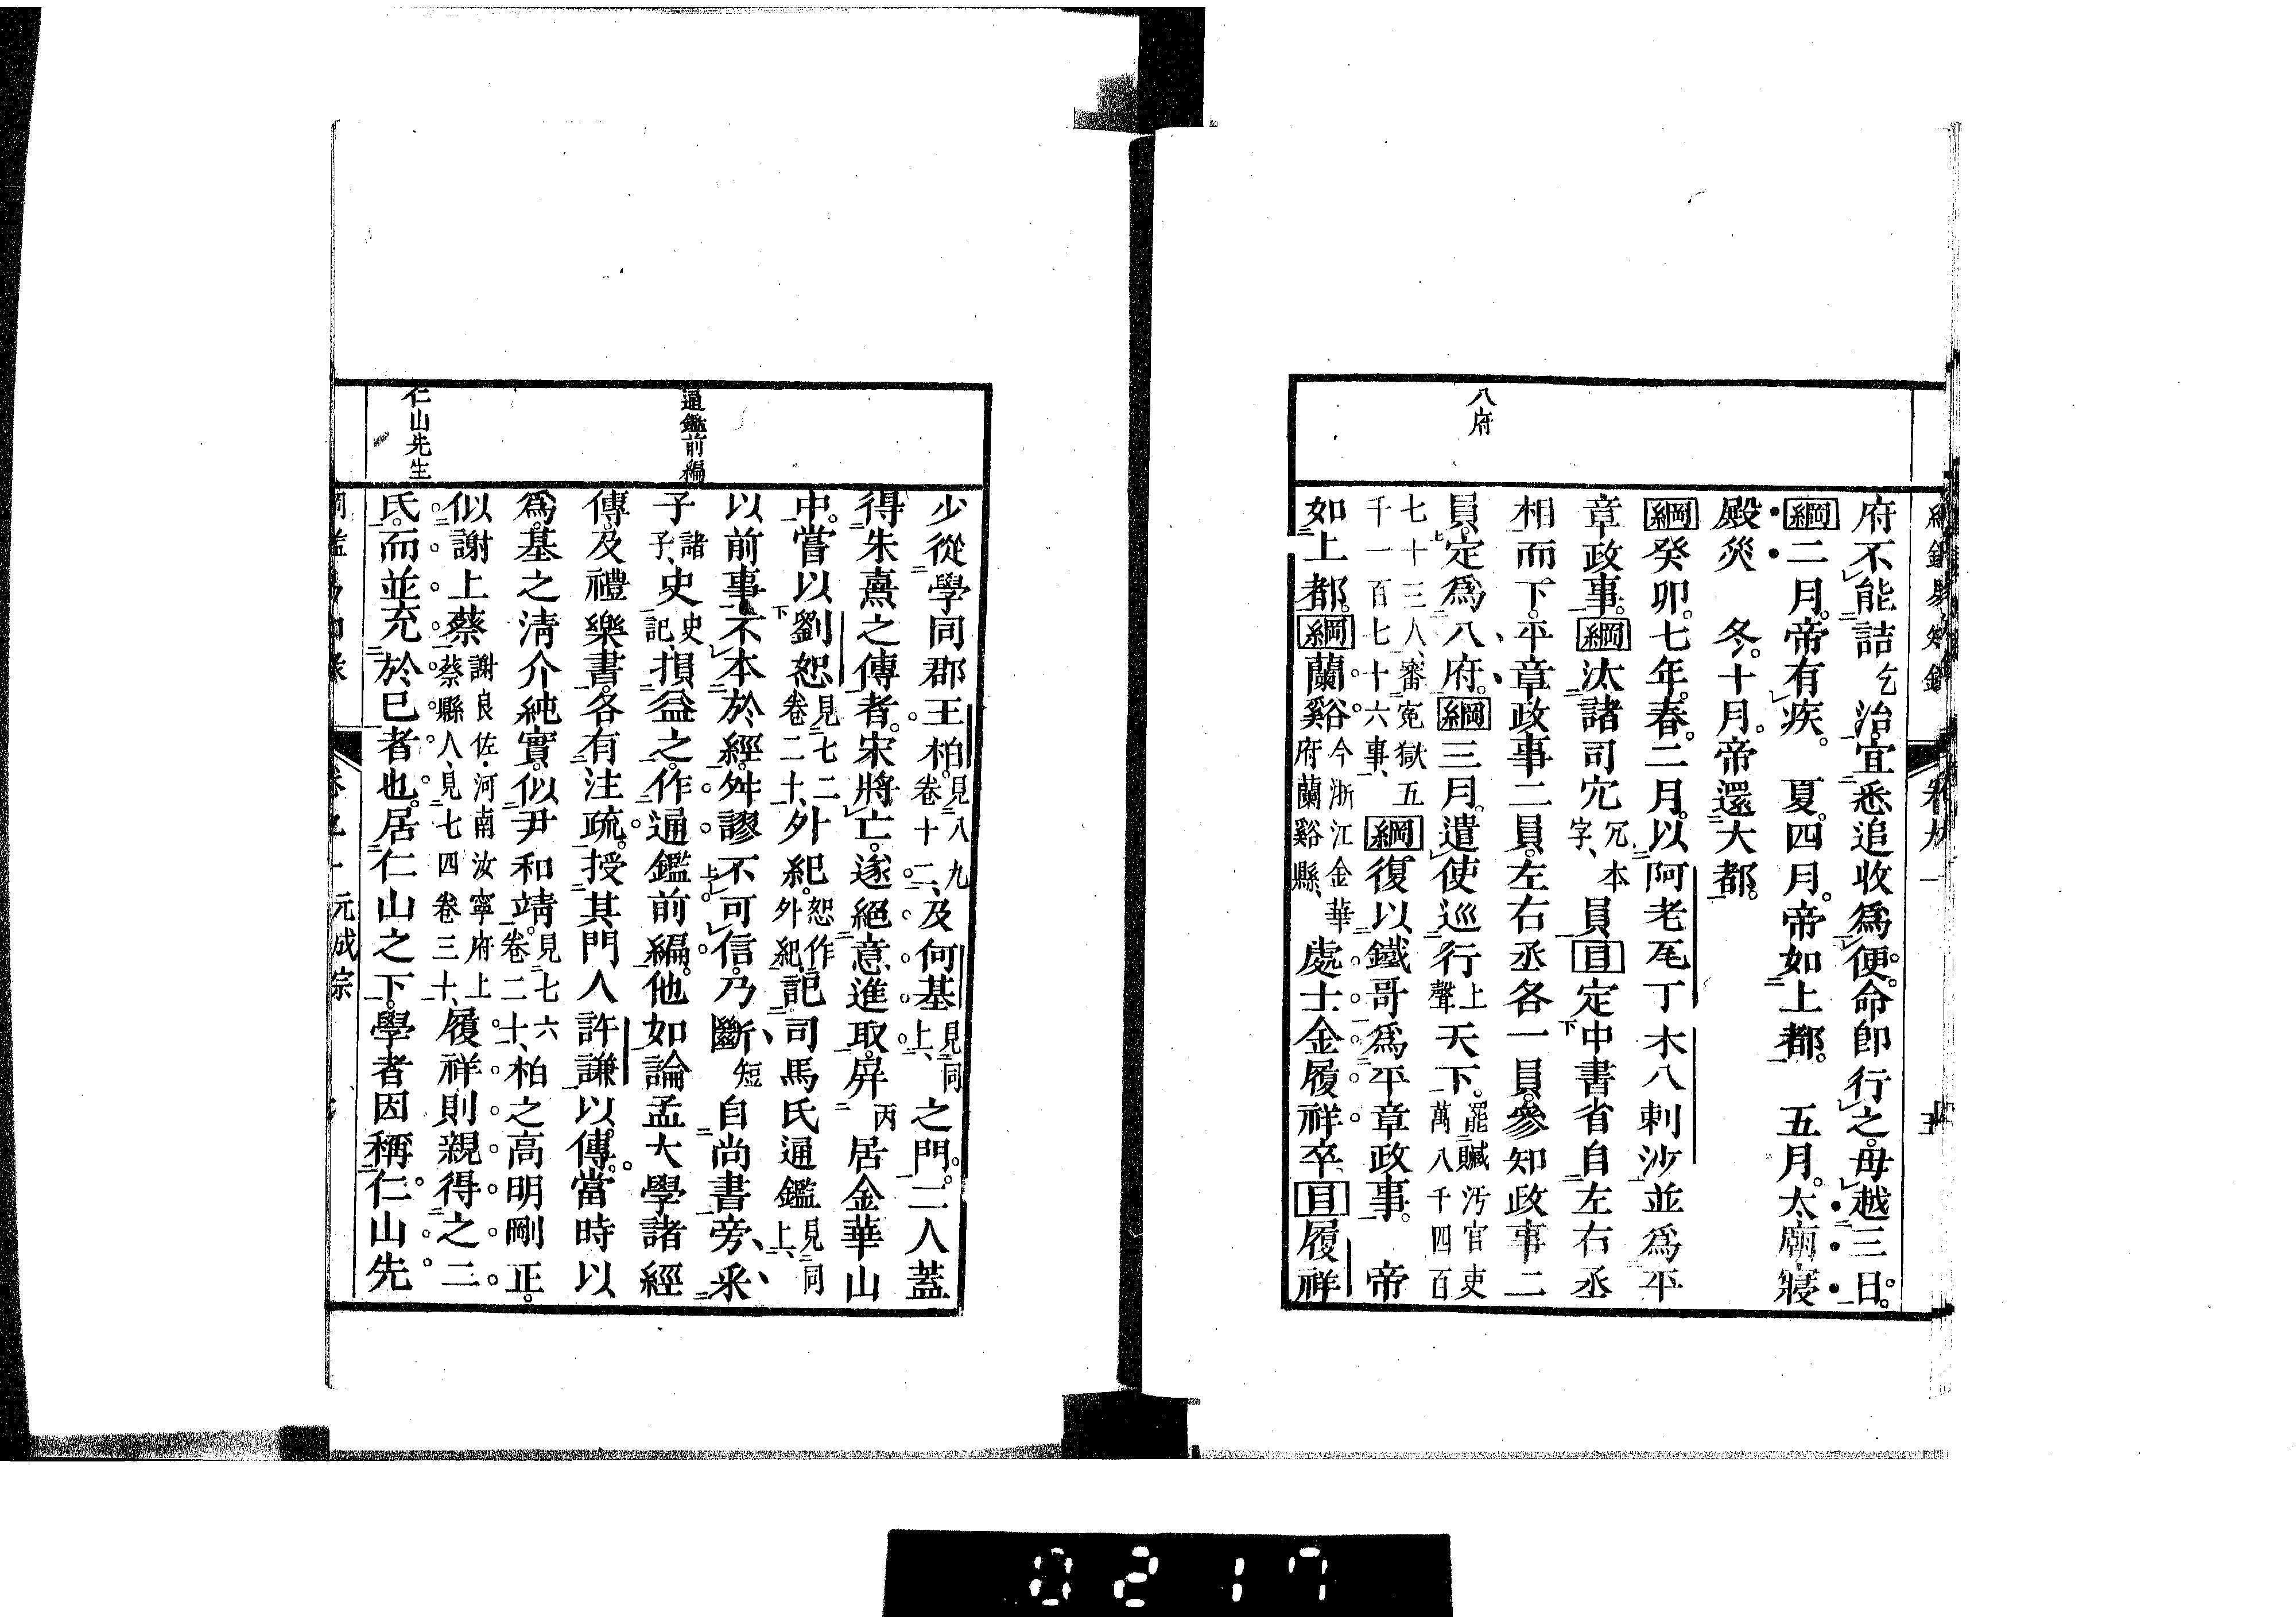 八府
府不能詰乞治。宜悉追收爲便。命即行之。毋越三日。
綱二月。帝有疾。　夏。四月。帝如上都。　五月。太廟寢
殿災　冬。十月。帝還大都。
綱癸卯。七年。春。二月。以阿老瓦丁木八剌沙並爲平
章政事。綱汰諸司宂冗本字、員目定中書省自左右丞
相而下。平章政事二員。左右丞各一員。參知政事二
員。定爲八府。綱三月。遣使巡行上聲天下。罷贓汚官吏萬八千四百
七十三人、審寃獄五千一百七十六事、綱復以鐵哥爲平章政事。　帝
如上都。綱蘭谿今浙江金華府蘭谿縣、處士金履祥卒目履祥
通鑑前編
仁山先生
少從學同郡王柏。見八九卷十二、及何基見同上、之門。二人蓋
得朱熹之傳者。宋將亡。遂絕意進取。屏丙居金華山
中。嘗以劉恕見七二卷二十、外紀。恕作外紀、記司馬氏通鑑見同上、
以前事。不本於經。舛謬不可信。乃斷短自尚書旁、采
子諸子、史史記、損益之。作通鑑前編。他如論孟大學諸經
傳。及禮樂書。各有注疏。授其門人許謙以傳。當時以
爲。基之清介純實。似尹和靖。見七六卷二十、柏之高明剛正。
似謝上蔡謝良佐・河南汝寧府上蔡縣人、見七四卷三十、履祥則親得之二
氏。而並充於己者也。居仁山之下。學者因稱仁山先
元成宗